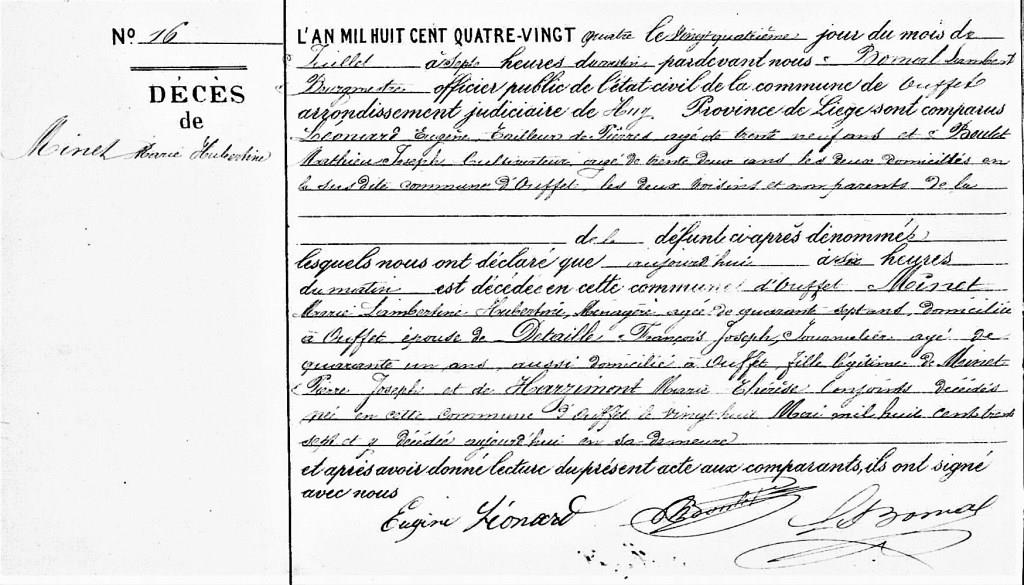 N° 16
DÉCÈS
de
Minet Marie Hubertine
L'AN MIL HUIT CENT QUATRE-VINGT quatre le vingt quatrième jour du mois de
Juillet à sept heures du matin pardevant nous Bomal Lambert
Burgmestre officier public de l'état civil de la commune de Ouffet
arrondissement judiciaire de Huy Province de Liège sont comparus
Léonard Eugène Tailleur de Pierres agé de trente neuf ans et Boulet
Mathieu Joseph Cultivateur agé de trente deux ans les deux domiciliés en
la susdite commune d'Ouffet les deux voisins et non parents de la
de la défunte ci-après dénommée
lesquels nous ont déclaré que aujourd'hui à six heures
du matin est décédée en cette commune d'Ouffet Minet
Marie Lambertine Hubertine, Ménagère agée de quarante sept ans, domiciliée
à Ouffet épouse de Detaille François Joseph, Journalier agé de
quarante un ans, aussi domicilié à Ouffet fille légitime de Minet
Pierre Joseph et de Harzimont Marie Thérèse conjoints décédés
né en cette commune d'Ouffet le vingt huit Mai mil huit cent trente
sept et y décédée aujourd'hui en sa demeure
et après avoir donné lecture du présent acte aux comparants, ils ont signé
avec nous
Eugène Léonard Boulet L Bomal